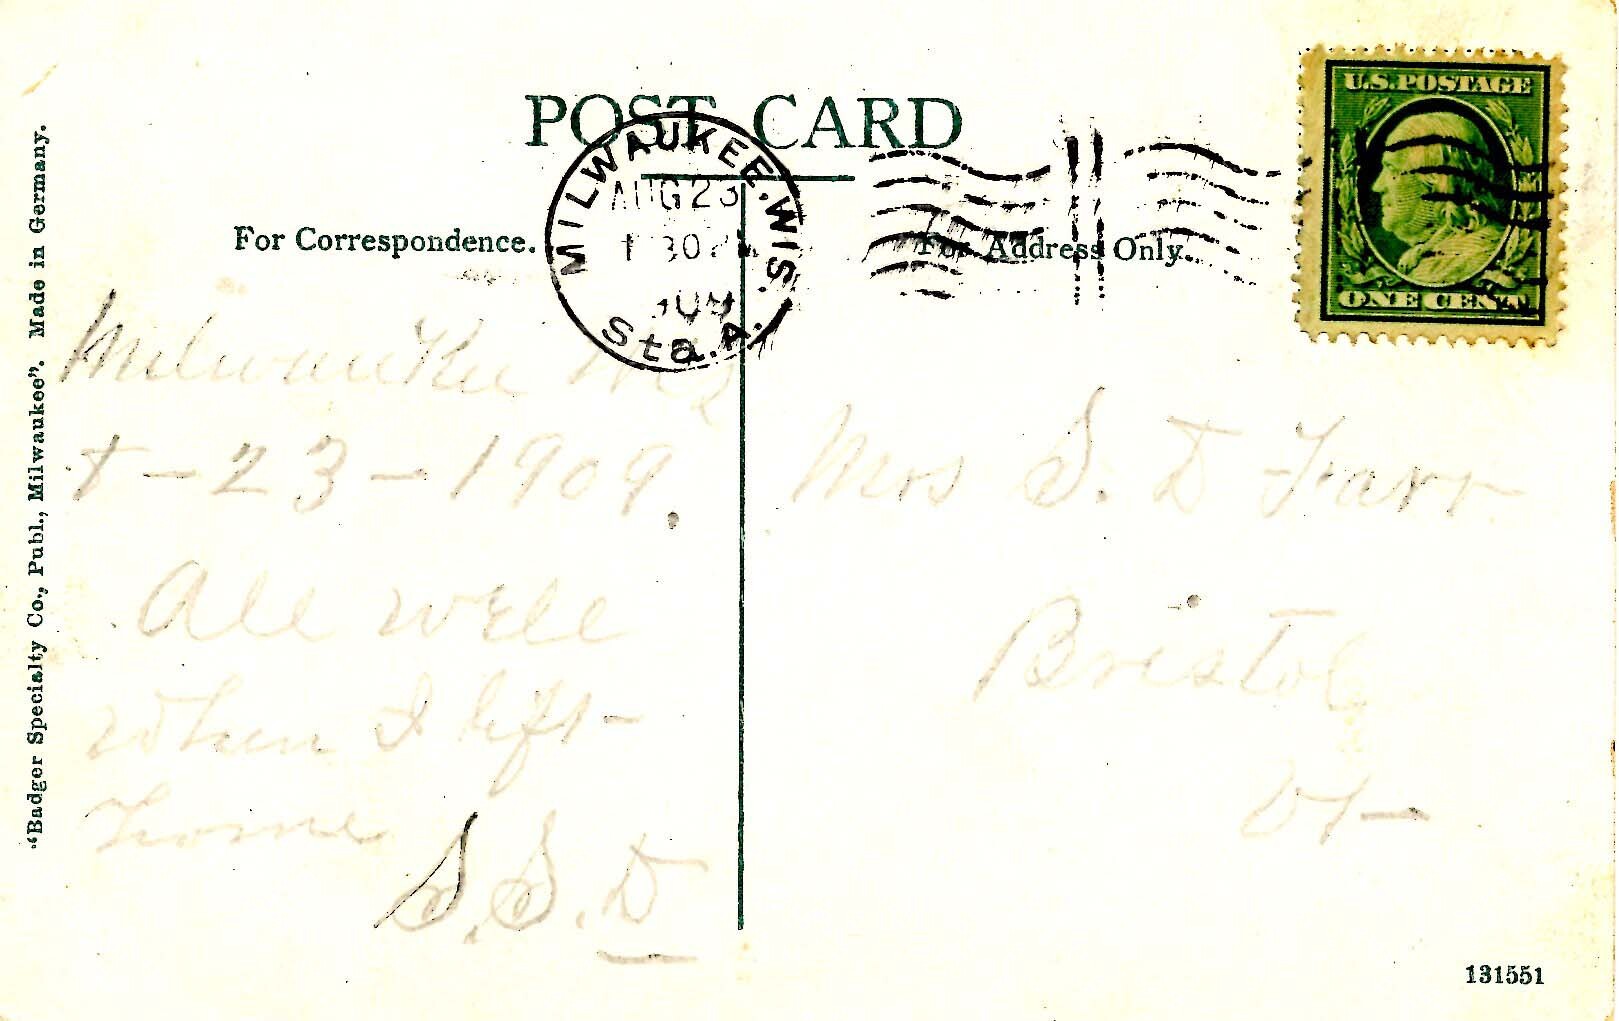 POST CARD
U.S. POSTAGE
ONE CENT
MILWAUKEE, WIS.
AUG 23
Sta. A.
For Correspondence.
For Address Only.
Milwaukee
- 23 - 1909.
All well
when I left
home
S. S. D
Mrs S. D Farr
Bristol
Vt
"Badger Specialty Co., Publ., Milwaukee". Made in Germany.
131551